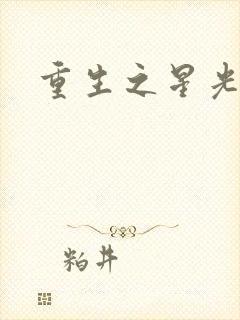 重生之星光
粕井